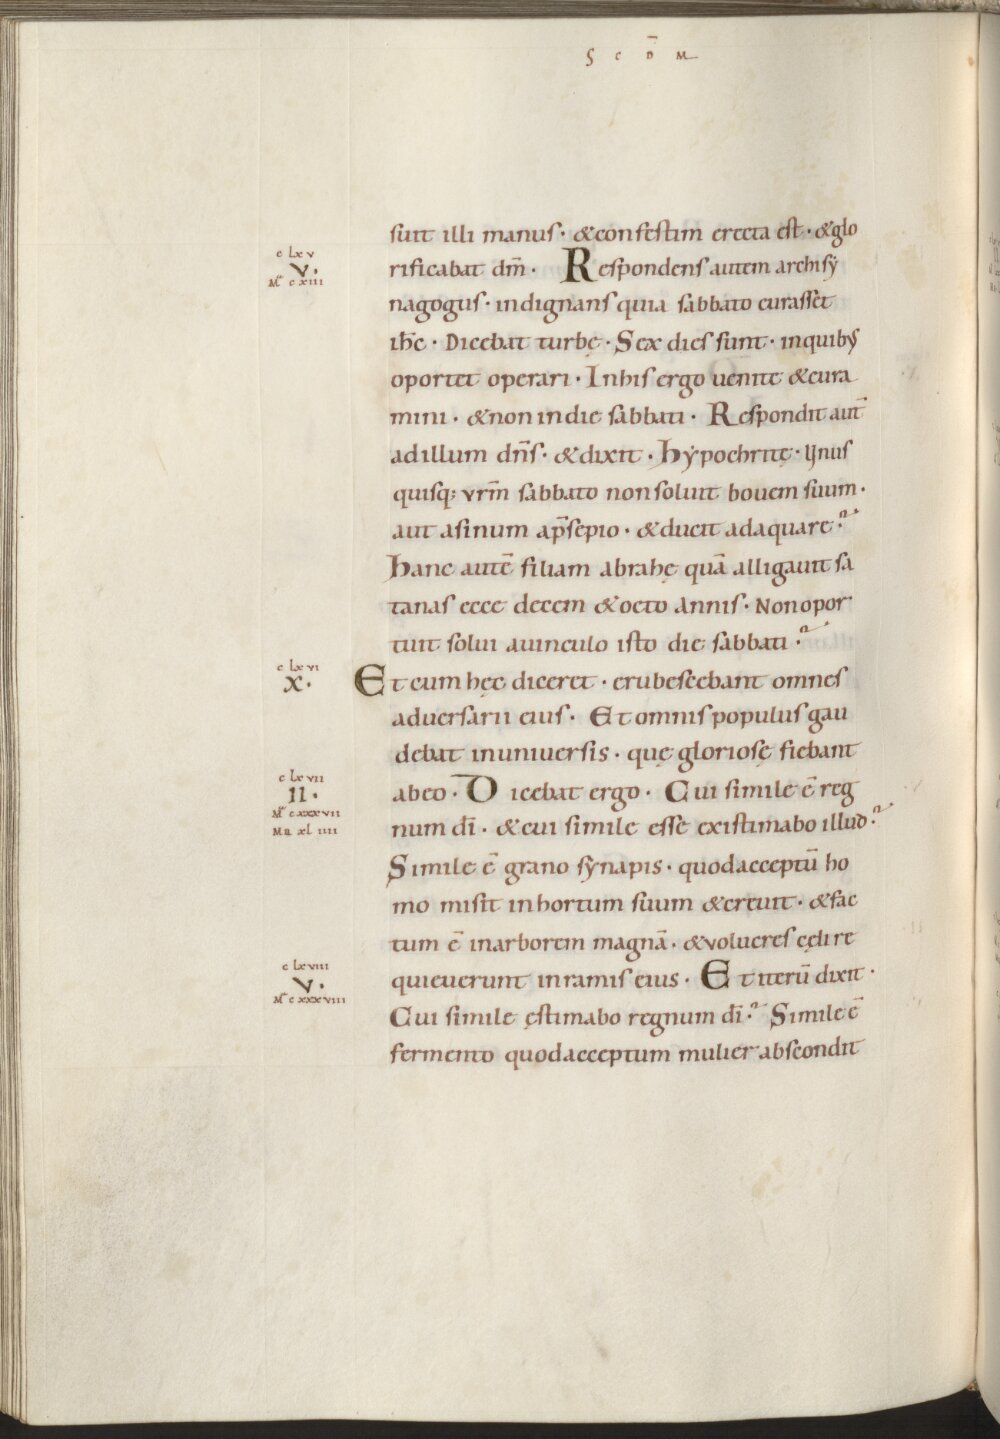 S c D̄ M
suit illi manus· &confestim erecta est· &glo
c lxv
V·
Mr̄ cxiii
rificabat dm̄· Respondens autem archisy
nagogus· indignans quia sabbato curasset
ihc̄· Dicebat turbę· Sex dies sunt· inquibꝰ
oportet operari· Inhis ergo uenite &cura
mini· &non indie sabbati· Respondit aut̄
adillum dn̄s· &dixit· hypochritę· Unus
quisq; vrm̄ sabbato nonsoluit bouem suum·
aut asinum ap̄sepio· &ducit adaquare?
hanc autē filiam abrahę quā alligauit sa
tanas ecce decem &octo annis· Nonopor
tuit solui auinculo isto die sabbati?
c lxvi
X·
Et cum hęc diceret· erubescebant omnes
aduersarii eius· Et omnis populus gau
debat inuniuersis· quę gloriosę fiebant
c lxvii
II·
Mr̄ cxxxvii
Ma xliiii
abeo· Dicebat ergo· Cui simile ē reg
num dī· &cui simile esse existimabo illud?
Simile ē grano synapis· quodacceptū ho
mo misit inhortum suum &creuit· &fac
tum ē inarborem magnā· &volucres cęli re
c lxviii
V·
Mr̄ cxxxviii
quieuerunt inramis eius· Et iterū dixit·
Cui simile ęstimabo regnum dī? Simile ē
fermento quodacceptum mulier abscondit